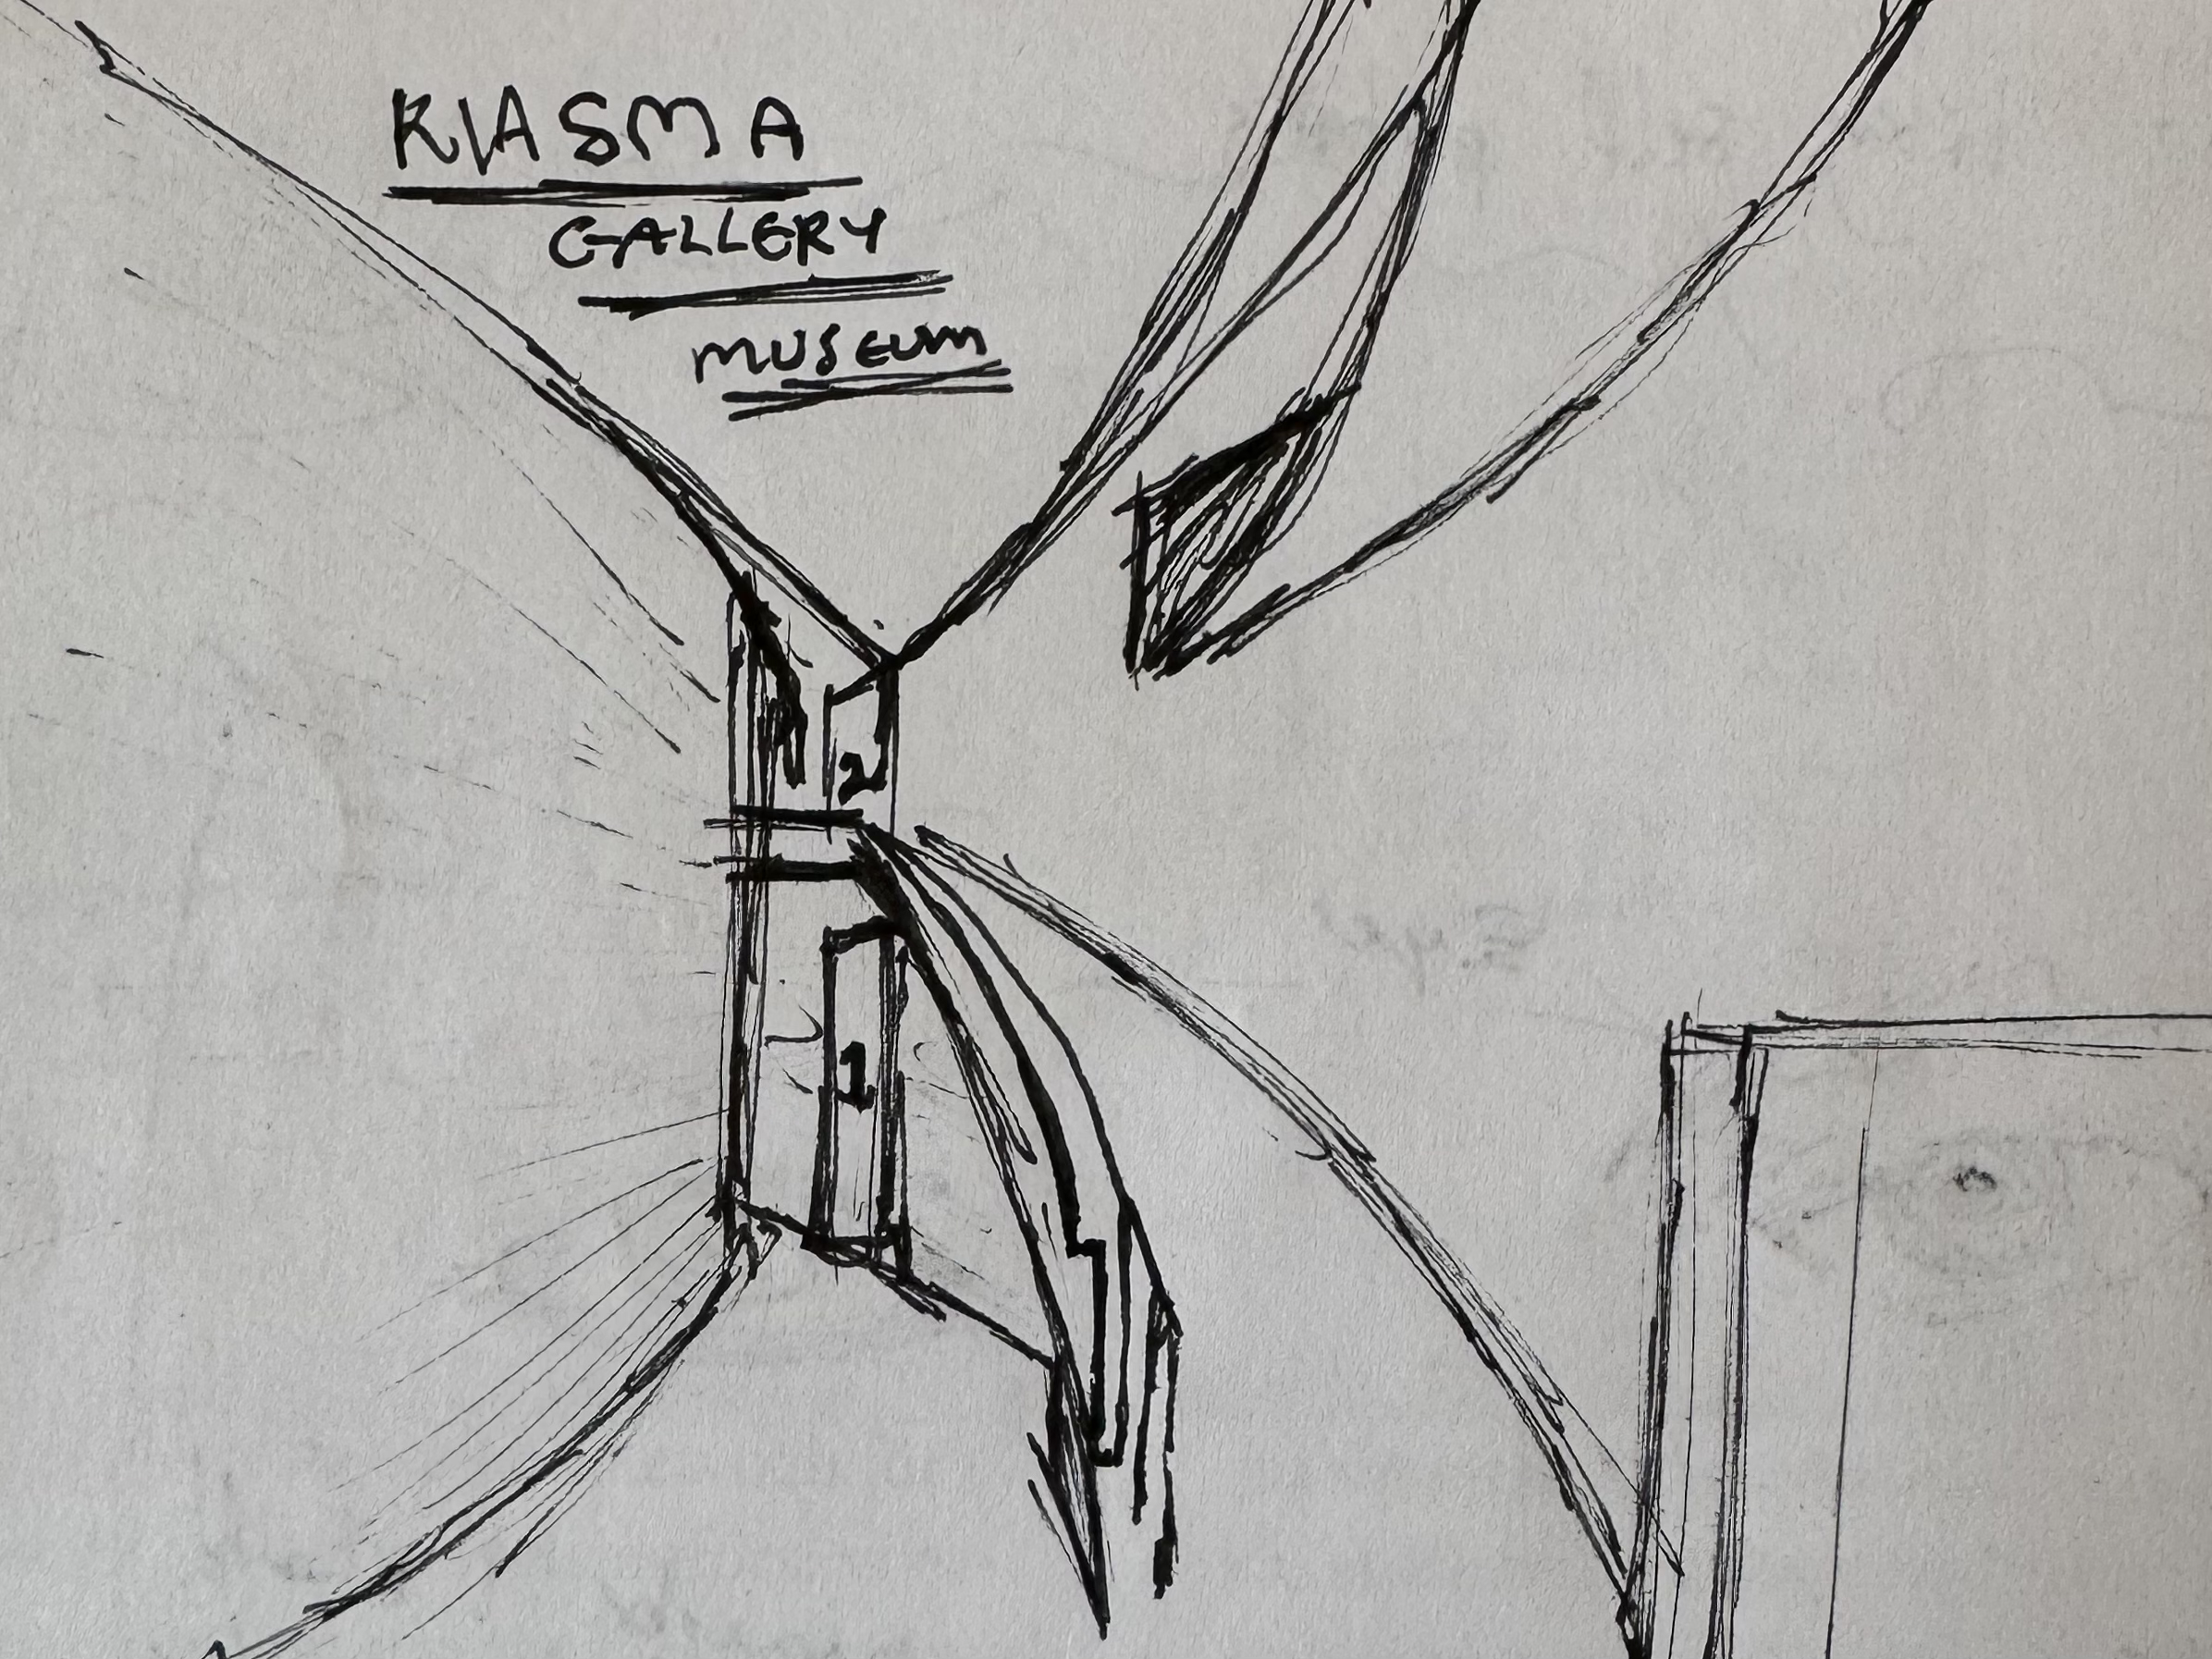 KIASMA
GALLERY
MUSEUM
2
1